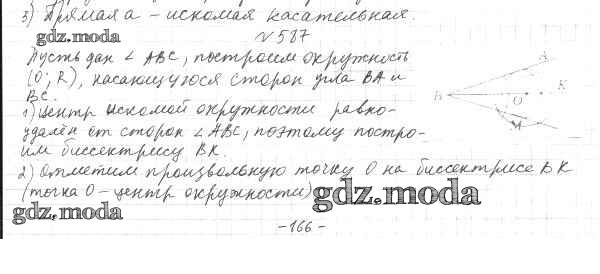 3) Прямая a – искомая касательная.
gdz.moda
№587
Пусть дан ∠ ABC, построим окружность
(O; R), касающуюся сторон угла BA и
BC.
1) Центр искомой окружности равно-
удалён от сторон ∠ABC, поэтому постро-
им биссектрису BK.
2) Отметим произвольную точку O на биссектрисе BK
(точка O – центр окружности)
gdz.moda
gdz.moda
-166-
A
B
O
K
M